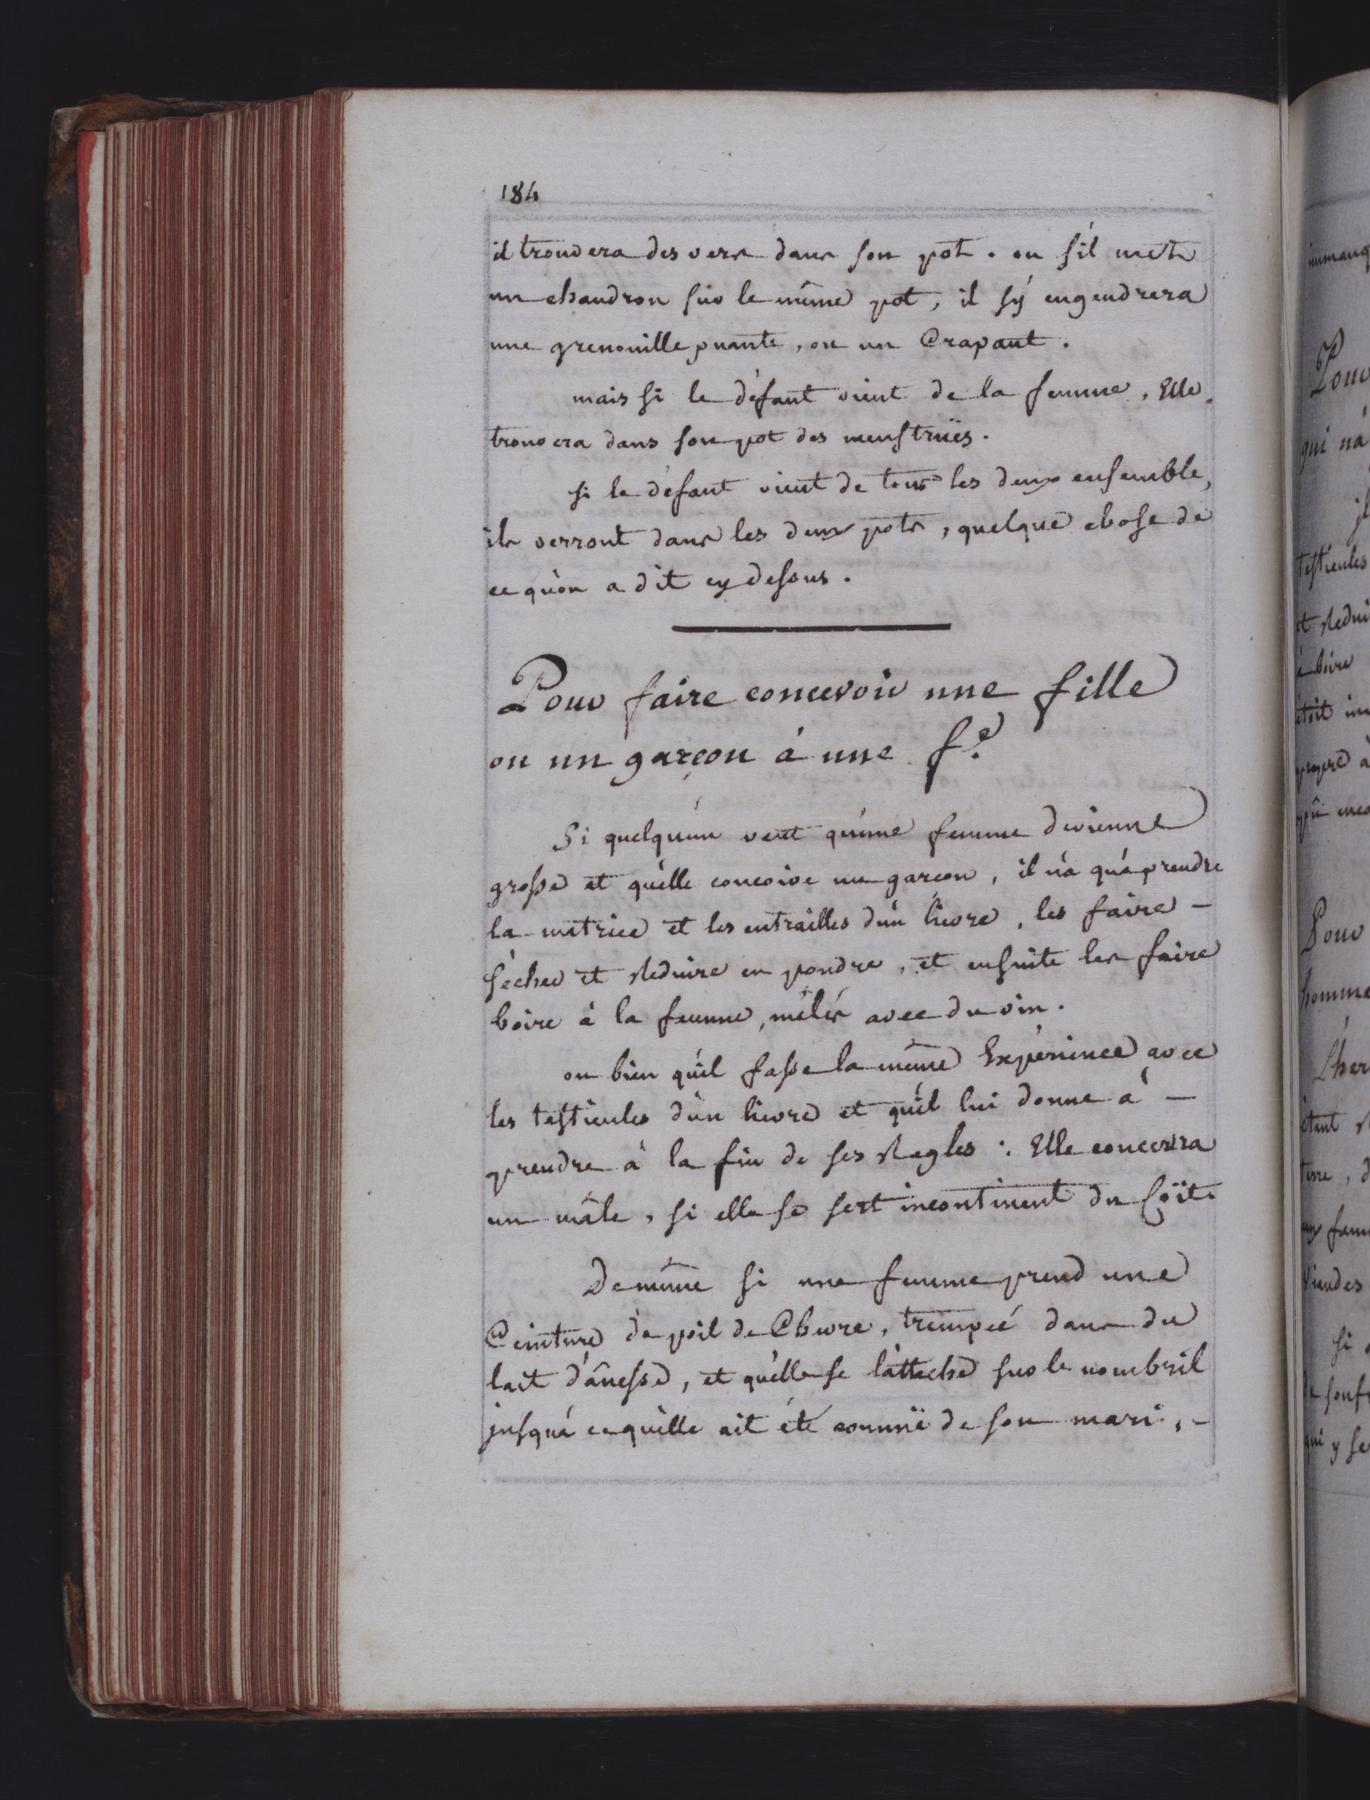 184
il trouvera des vers dans son pot. ou s'il met
un chaudron sur le même pot, il s'y engendrera
une grenouille puante, ou un Crapaut.
mais si le défaut vient de la femme, Elle
trouvera dans son pot des menstrües.
si le défaut vient de tous les deux ensemble,
ils verront dans les deux pots, quelque chose de
ce qu'on a dit cy dessus.
Pour faire concevoir une fille
ou un garçon à une fe.
Si quelqu'un veut qu'une femme devienne
grosse et qu'elle concoive un garçon, il n'a qu'à prendre
la matrice et les entrailles d'un lievre, les faire -
sécher et Reduire en poudre, et ensuite les faire
boire à la femme, mêlés avec du vin.
ou bien qu'il fasse la même Expérience avec
les testicules d'un lievre et qu'il lui donne à -
prendre à la fin de ses Regles : Elle concevra
un mâle, si elle se sert incontinent du Coït.
De même si une femme prend une
Ceinture de poil de Chevre, trempée dans du
lait d'ânesse, et qu'elle se l'attache sur le nombril
jusqu'à ce qu'elle ait été connüe de son mari, -
immanq
Pour
qui n'a
testicules
et Redui
à boire
étoit
propre à
Pour
homme
L'her
étant
terre, d
femm
viandes
si
de souf
qui y se